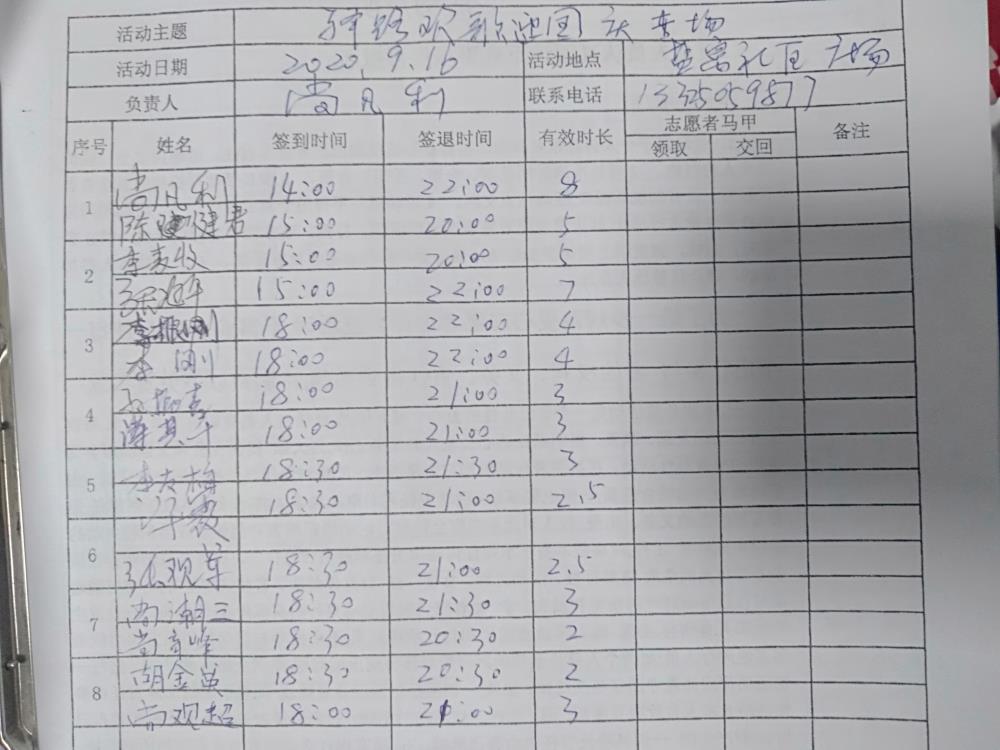 活动主题 驿路欢歌迎国庆专场
活动日期 2020.9.16 活动地点 盐窝社区广场
负责人 尚凡利 联系电话 13325059877
序号 姓名 签到时间 签退时间 有效时长 志愿者马甲 备注
领取 交回
1 尚凡利 14:00 22:00 8
陈健 15:00 20:00 5
2 李麦收 15:00 20:00 5
15:00 22:00 7
3 李振刚 18:00 22:00 4
李刚 18:00 22:00 4
4 18:00 21:00 3
18:00 21:00 3
5 李友梅 18:30 21:30 3
18:30 21:00 2.5
6
张观军 18:30 21:00 2.5
7 尚潮三 18:30 21:30 3
尚奇峰 18:30 20:30 2
8 胡金英 18:30 20:30 2
尚观超 18:00 21:00 3